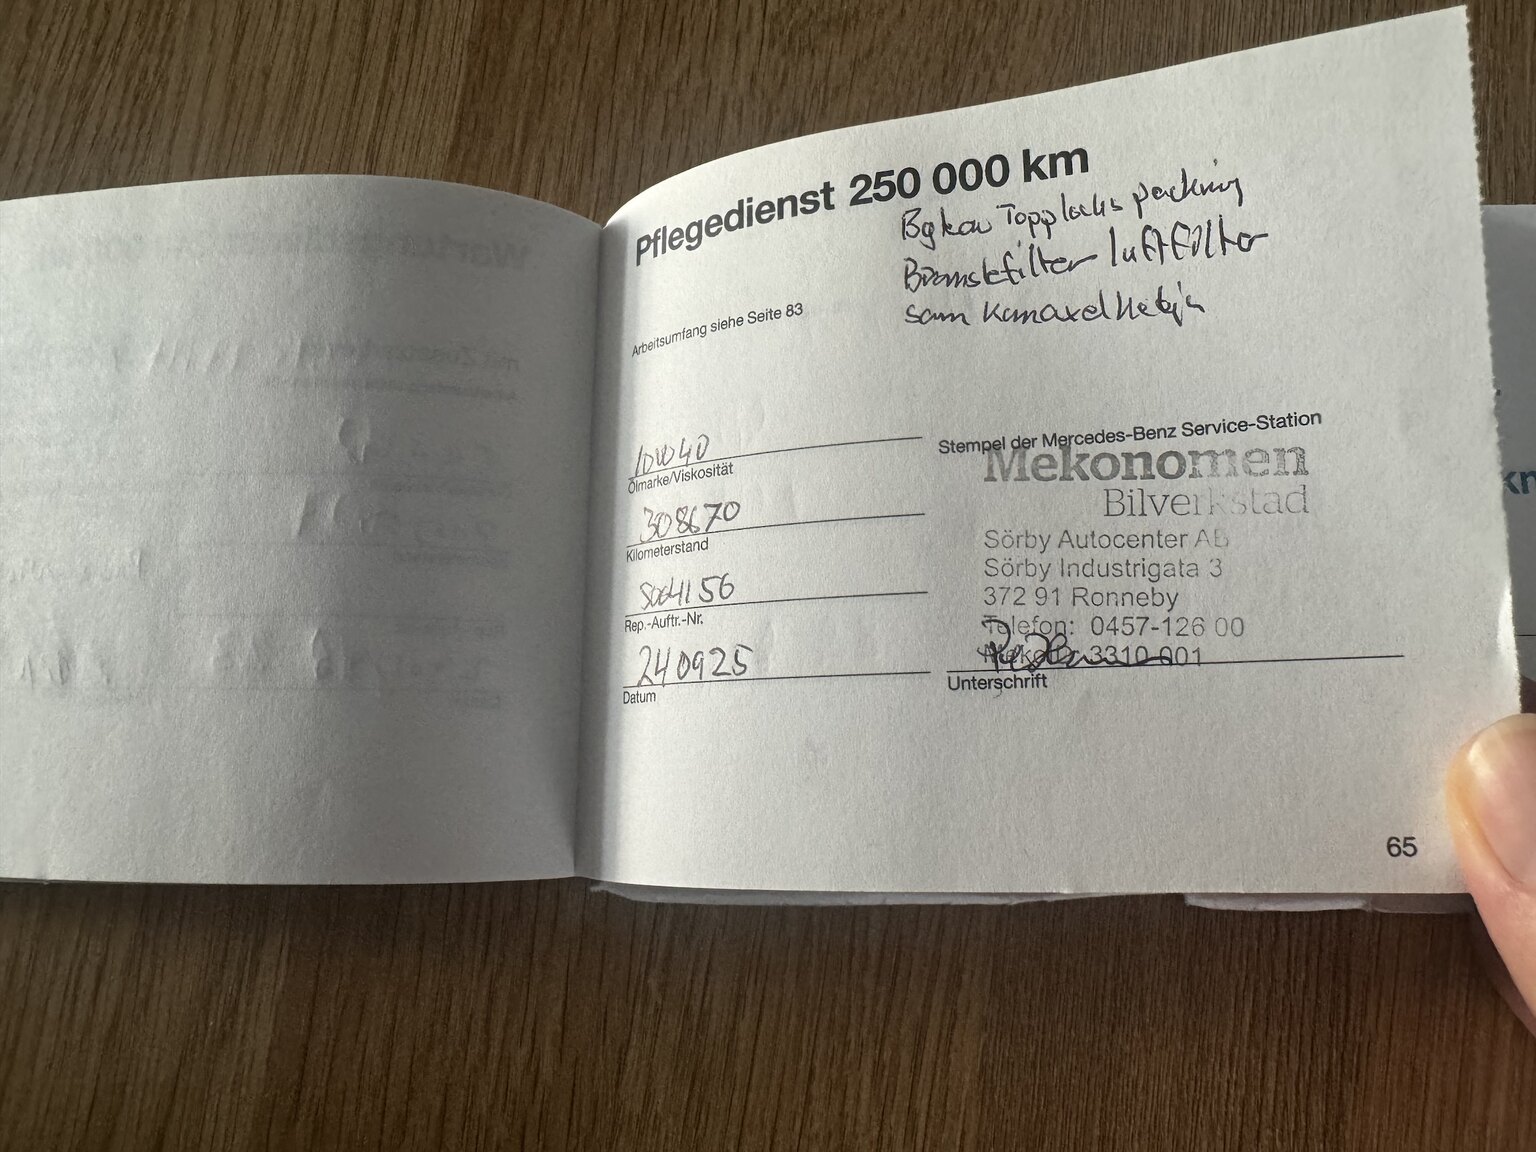 Pflegedienst 250 000 km
Topplocks packning
Bränslefilter luftfilter
sam Kamaxelkedja
Arbeitsumfang siehe Seite 83
10W40
Ölmarke/Viskosität
308670
Kilometerstand
Rep.-Auftr.-Nr.
240925
Datum
Stempel der Mercedes-Benz Service-Station
Mekonomen
Bilverkstad
Sörby Autocenter AB
Sörby Industrigata 3
372 91 Ronneby
Telefon: 0457-126 00
3310-001
Unterschrift
65